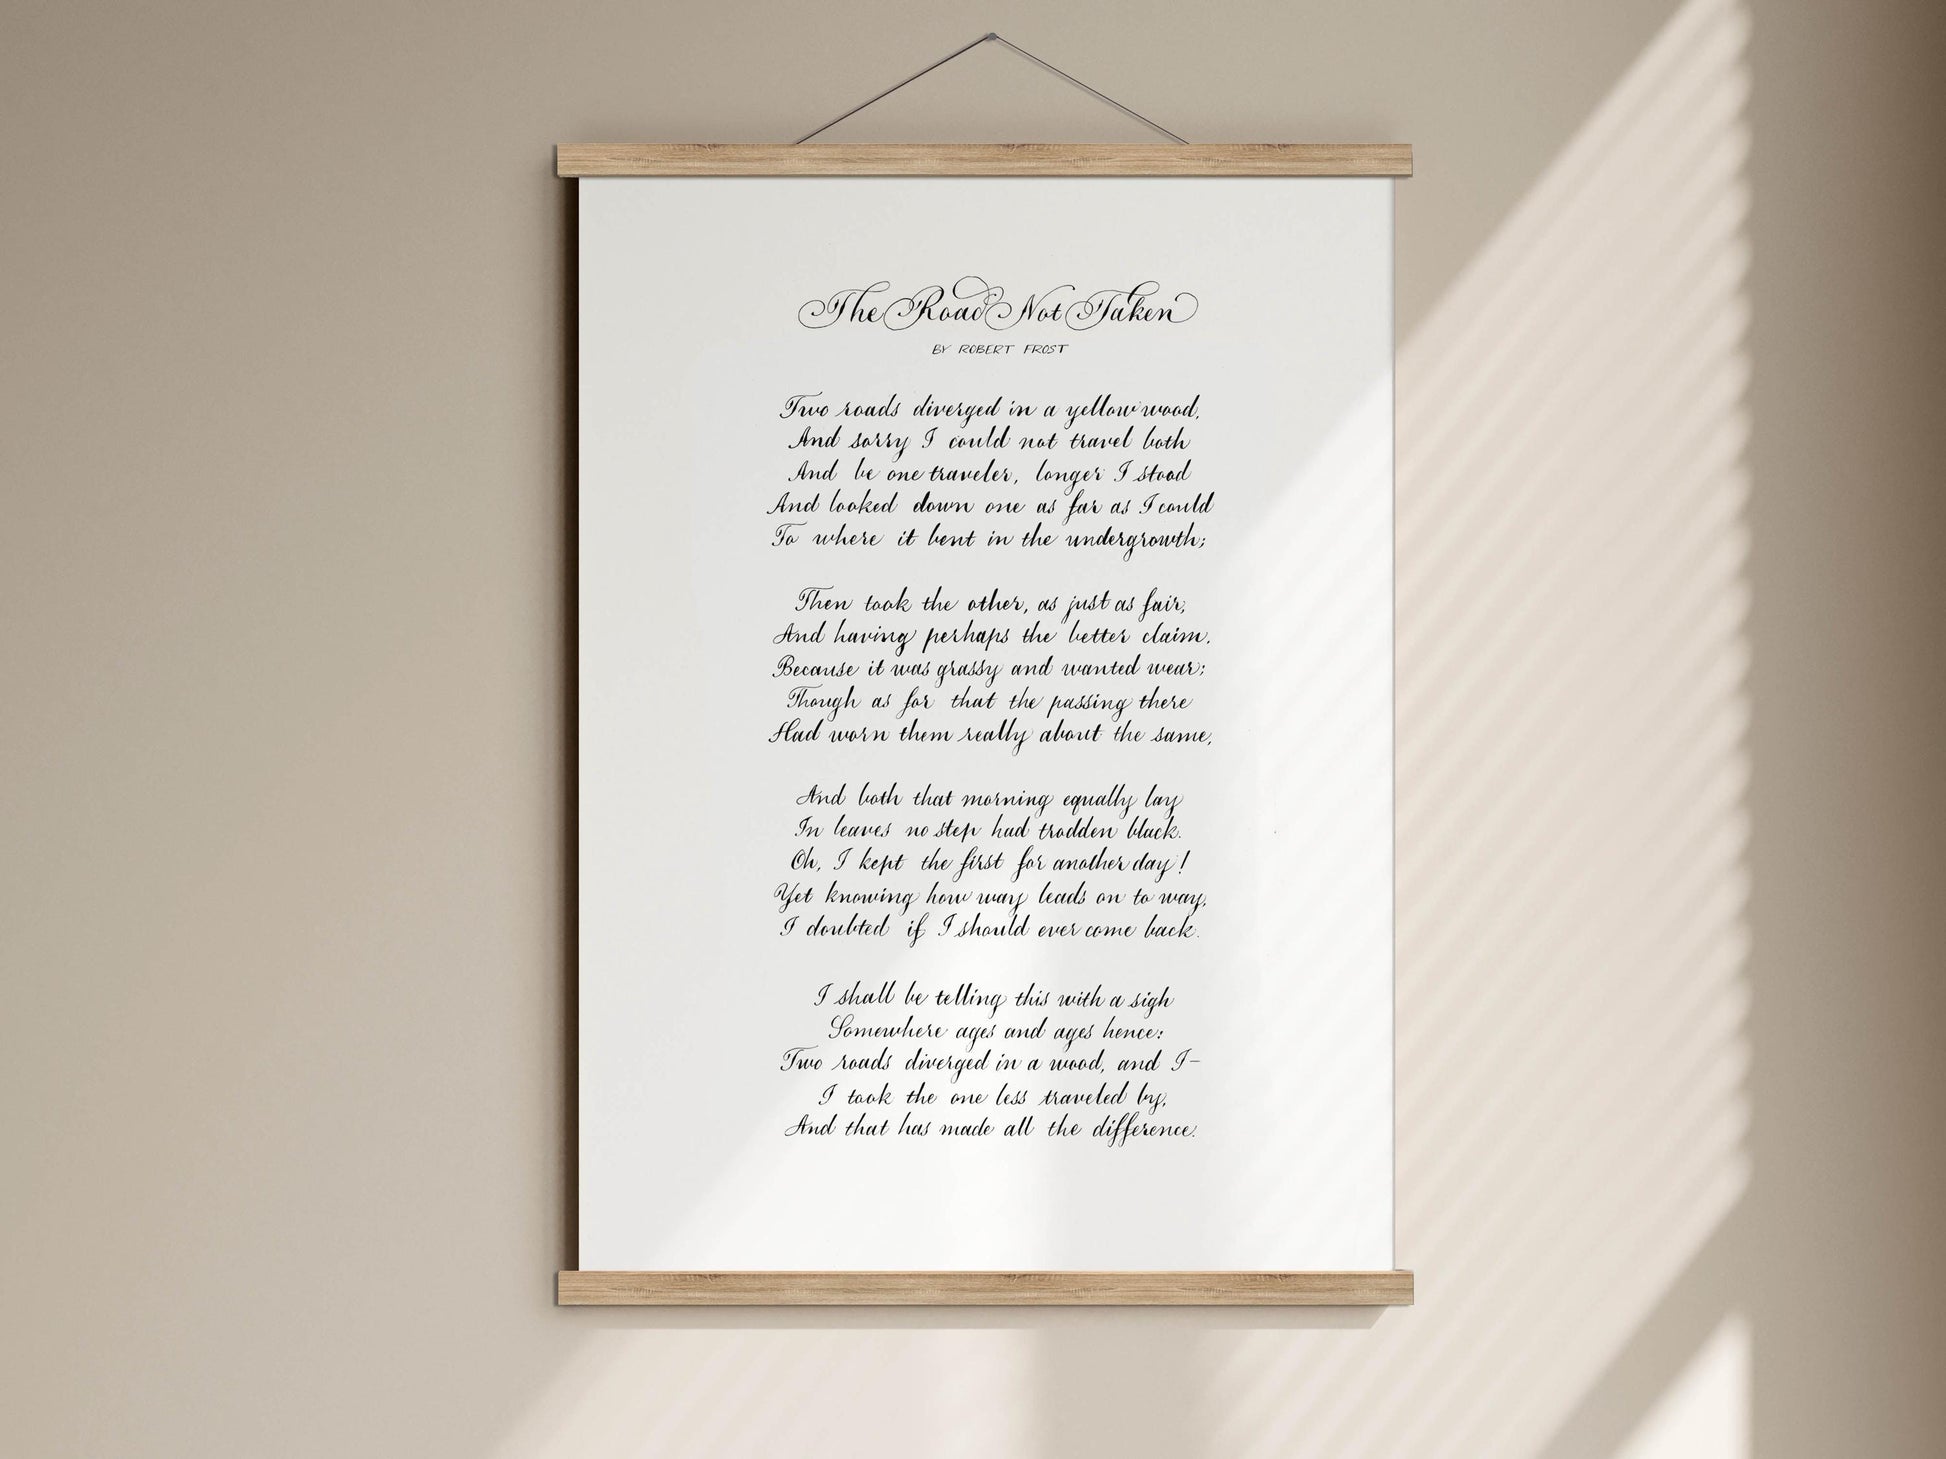 The Road Not Taken
BY ROBERT FROST
Two roads diverged in a yellow wood,
And sorry I could not travel both
And be one traveler, longer I stood
And looked down one as far as I could
To where it bent in the undergrowth;
Then took the other, as just as fair,
And having perhaps the better claim,
Because it was grassy and wanted wear;
Though as for that the passing there
Had worn them really about the same,
And both that morning equally lay
In leaves no step had trodden black.
Oh, I kept the first for another day!
Yet knowing how way leads on to way,
I doubted if I should ever come back.
I shall be telling this with a sigh
Somewhere ages and ages hence:
Two roads diverged in a wood, and I—
I took the one less traveled by,
And that has made all the difference.